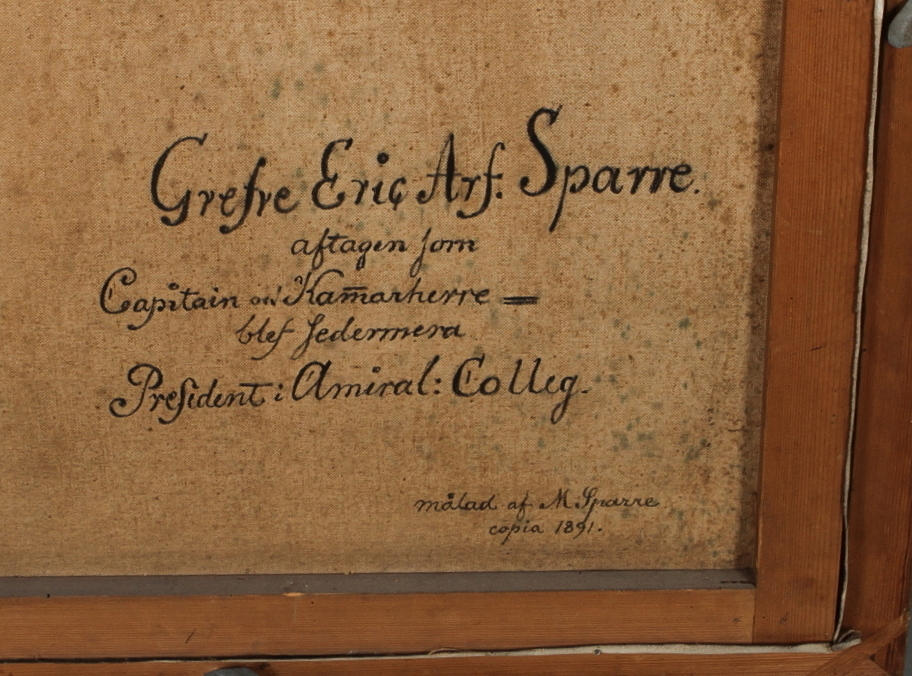 Grefve Eric Arf. Sparre.
aftagen som
Capitain och Kam̄arherre =
blef sedermera
President i Amiral: Colleg.
målad af M Sparre
copia 1891.